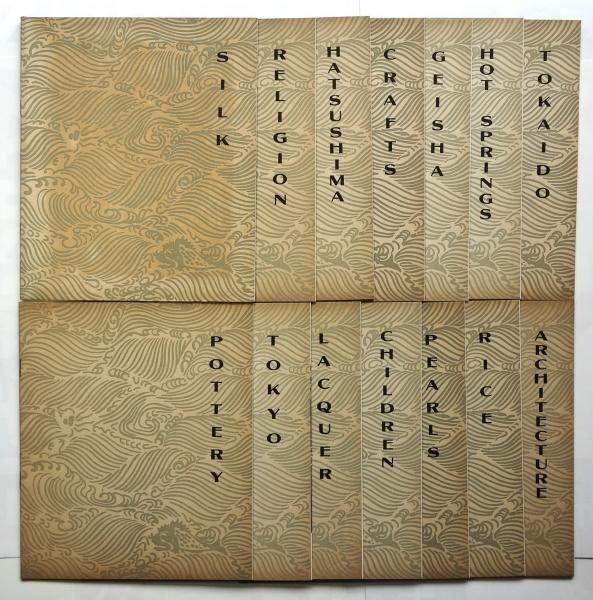 SILK
RELIGION
HATSUSHIMA
CRAFTS
GEISHA
HOT SPRINGS
TOKAIDO
POTTERY
TOKYO
LACQUER
CHILDREN
PEARLS
RICE
ARCHITECTURE